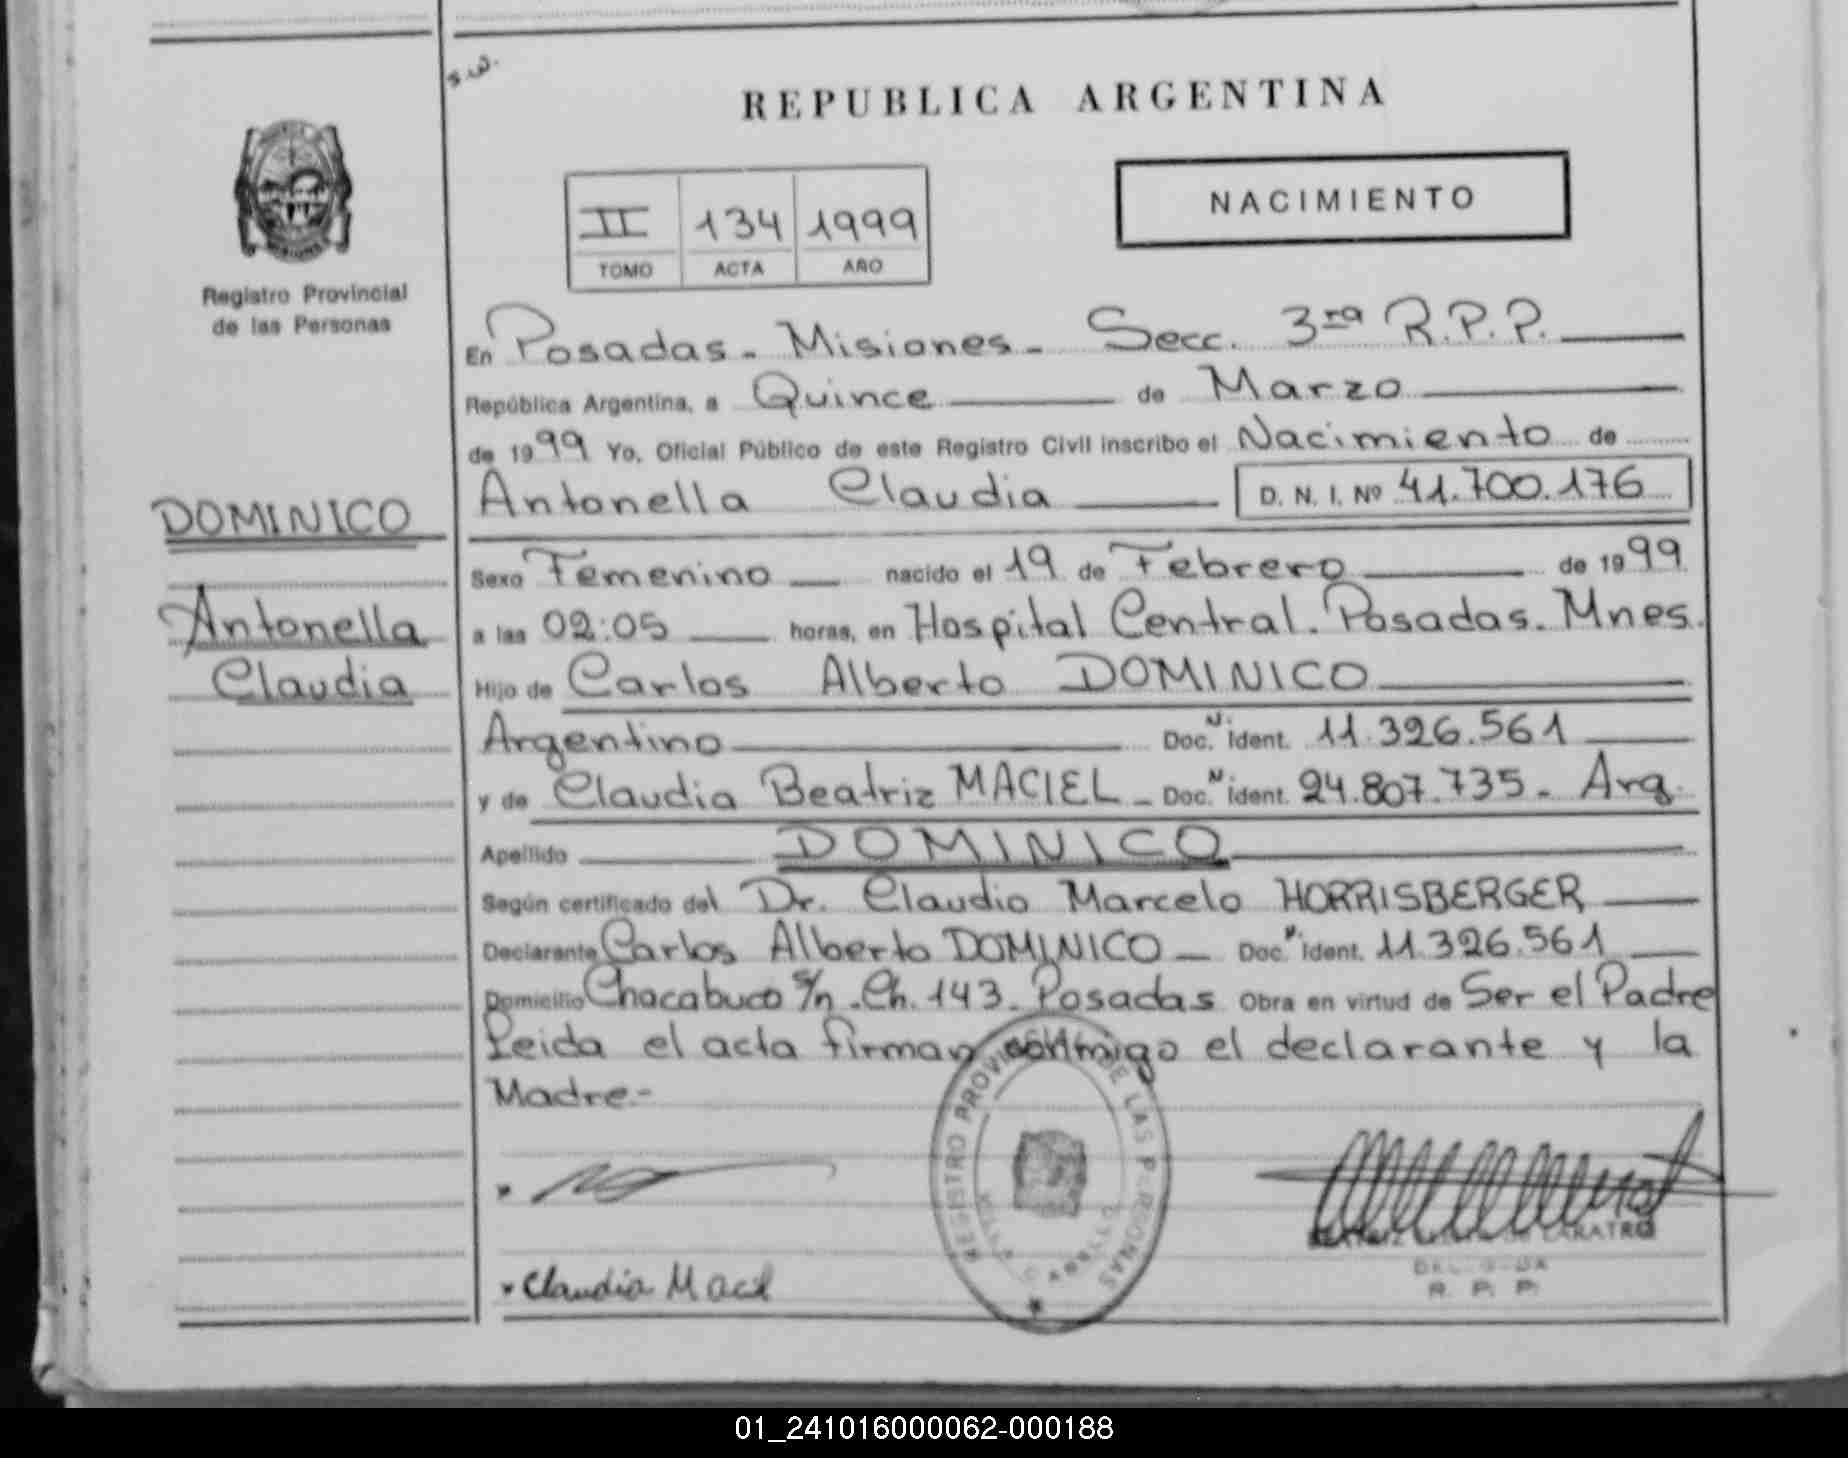 s.w.
REPUBLICA ARGENTINA
NACIMIENTO
II 134 1999
TOMO ACTA AÑO
Registro Provincial
de las Personas
En Posadas - Misiones - Secc. 3ra R.P.P.
República Argentina, a Quince de Marzo
de 1999 Yo, Oficial Público de este Registro Civil inscribo el Nacimiento de
Antonella Claudia D. N. I. Nº 41.700.176
DOMINICO
Antonella
Claudia
Sexo Femenino nacido el 19 de Febrero de 1999
a las 02:05 horas, en Hospital Central. Posadas. Mnes.
Hijo de Carlos Alberto DOMINICO
Argentino Doc. N. Ident. 11.326.561
y de Claudia Beatriz MACIEL - Doc. N. Ident. 24.807.735 - Arg.
Apellido DOMINICO
Según certificado del Dr. Claudio Marcelo HORRISBERGER
Declarante Carlos Alberto DOMINICO - Doc. N. Ident. 11.326.561
Domicilio Chacabuco s/n - Ch. 143 - Posadas Obra en virtud de Ser el Padre
Leida el acta firman conmigo el declarante y la
Madre.-
REGISTRO PROVINCIAL DE LAS PERSONAS
Claudia Maciel
R. P. P.
01_241016000062-000188